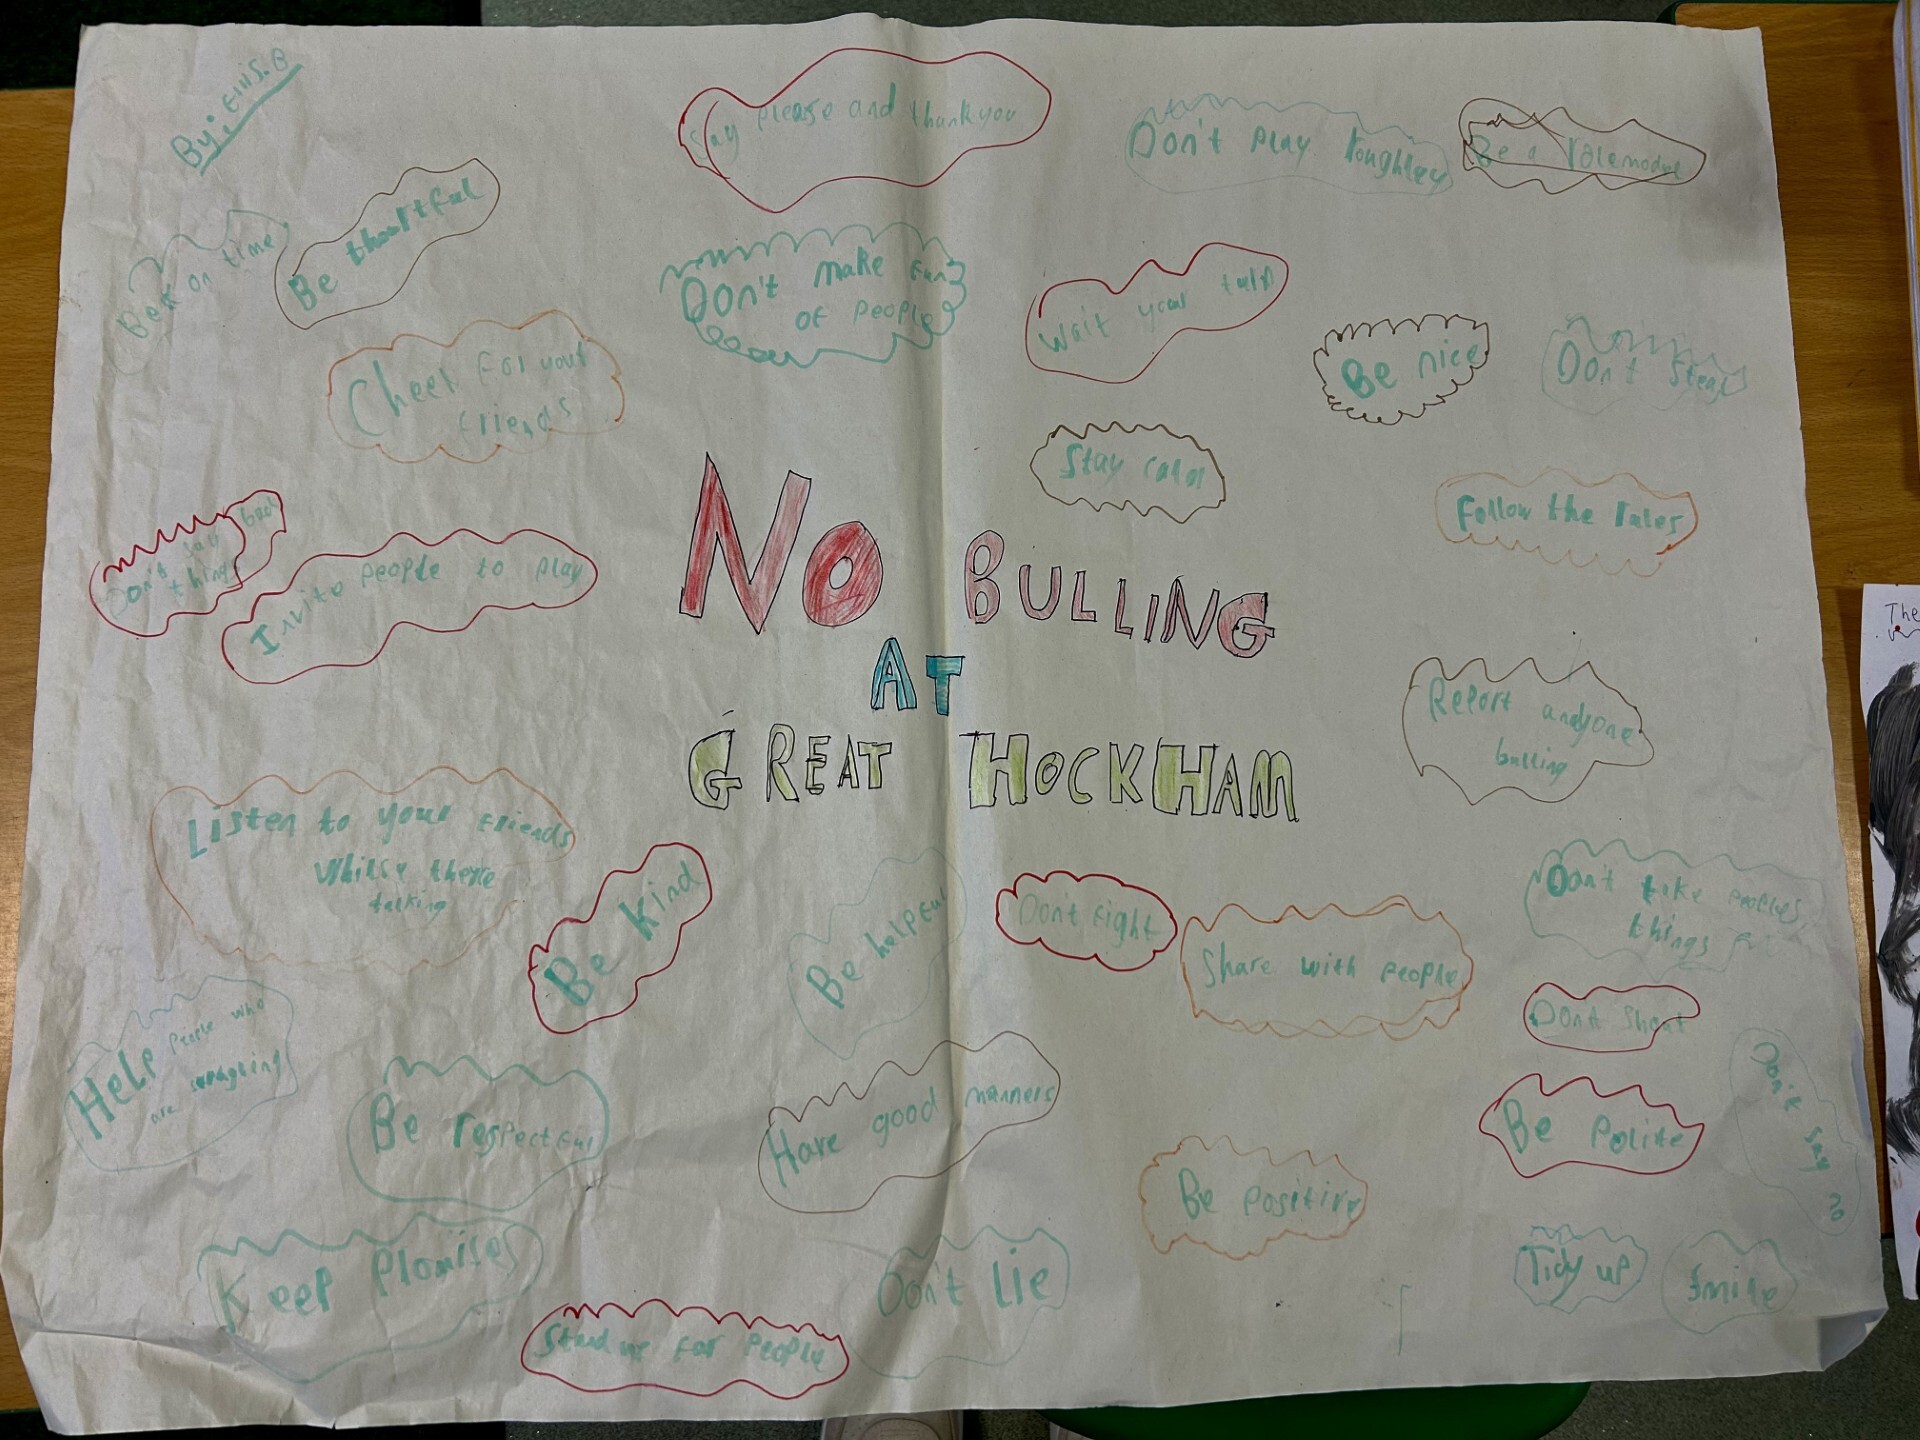 By: Ellis.B
Say please and thankyou
Don't Play roughley
Be a rolemodel
Be on time
Be
Don't make fun
of people
Wait your
Be nice
Don't Steal
Cheer for your
friends
Stay calm
Follow the rules
Don't say bad
things
Invite people to play
NO BULLING
AT
GREAT HOCKHAM
Report andyone
bulling
Listen to your friends
Whilse there
talking
Be kind
Be helpful
Don't fight
Share with people
Don't take peoples
things
Don't Shout
Help People who
are
Be respectful
Have good manners
Be Polite
Don't say
Be positive
Keep Promises
Don't Lie
Tidy up
Smile
Stand up for People
The